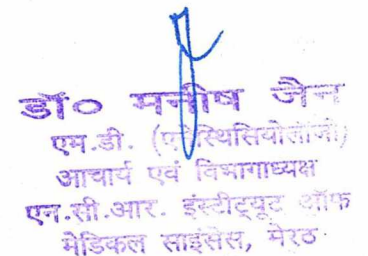 डॉ० मनीष जैन
एम.डी. (एनेस्थिसियोलॉजी)
आचार्य एवं विभागाध्यक्ष
एन.सी.आर. इंस्टीट्यूट ऑफ
मेडिकल साइंसेस, मेरठ